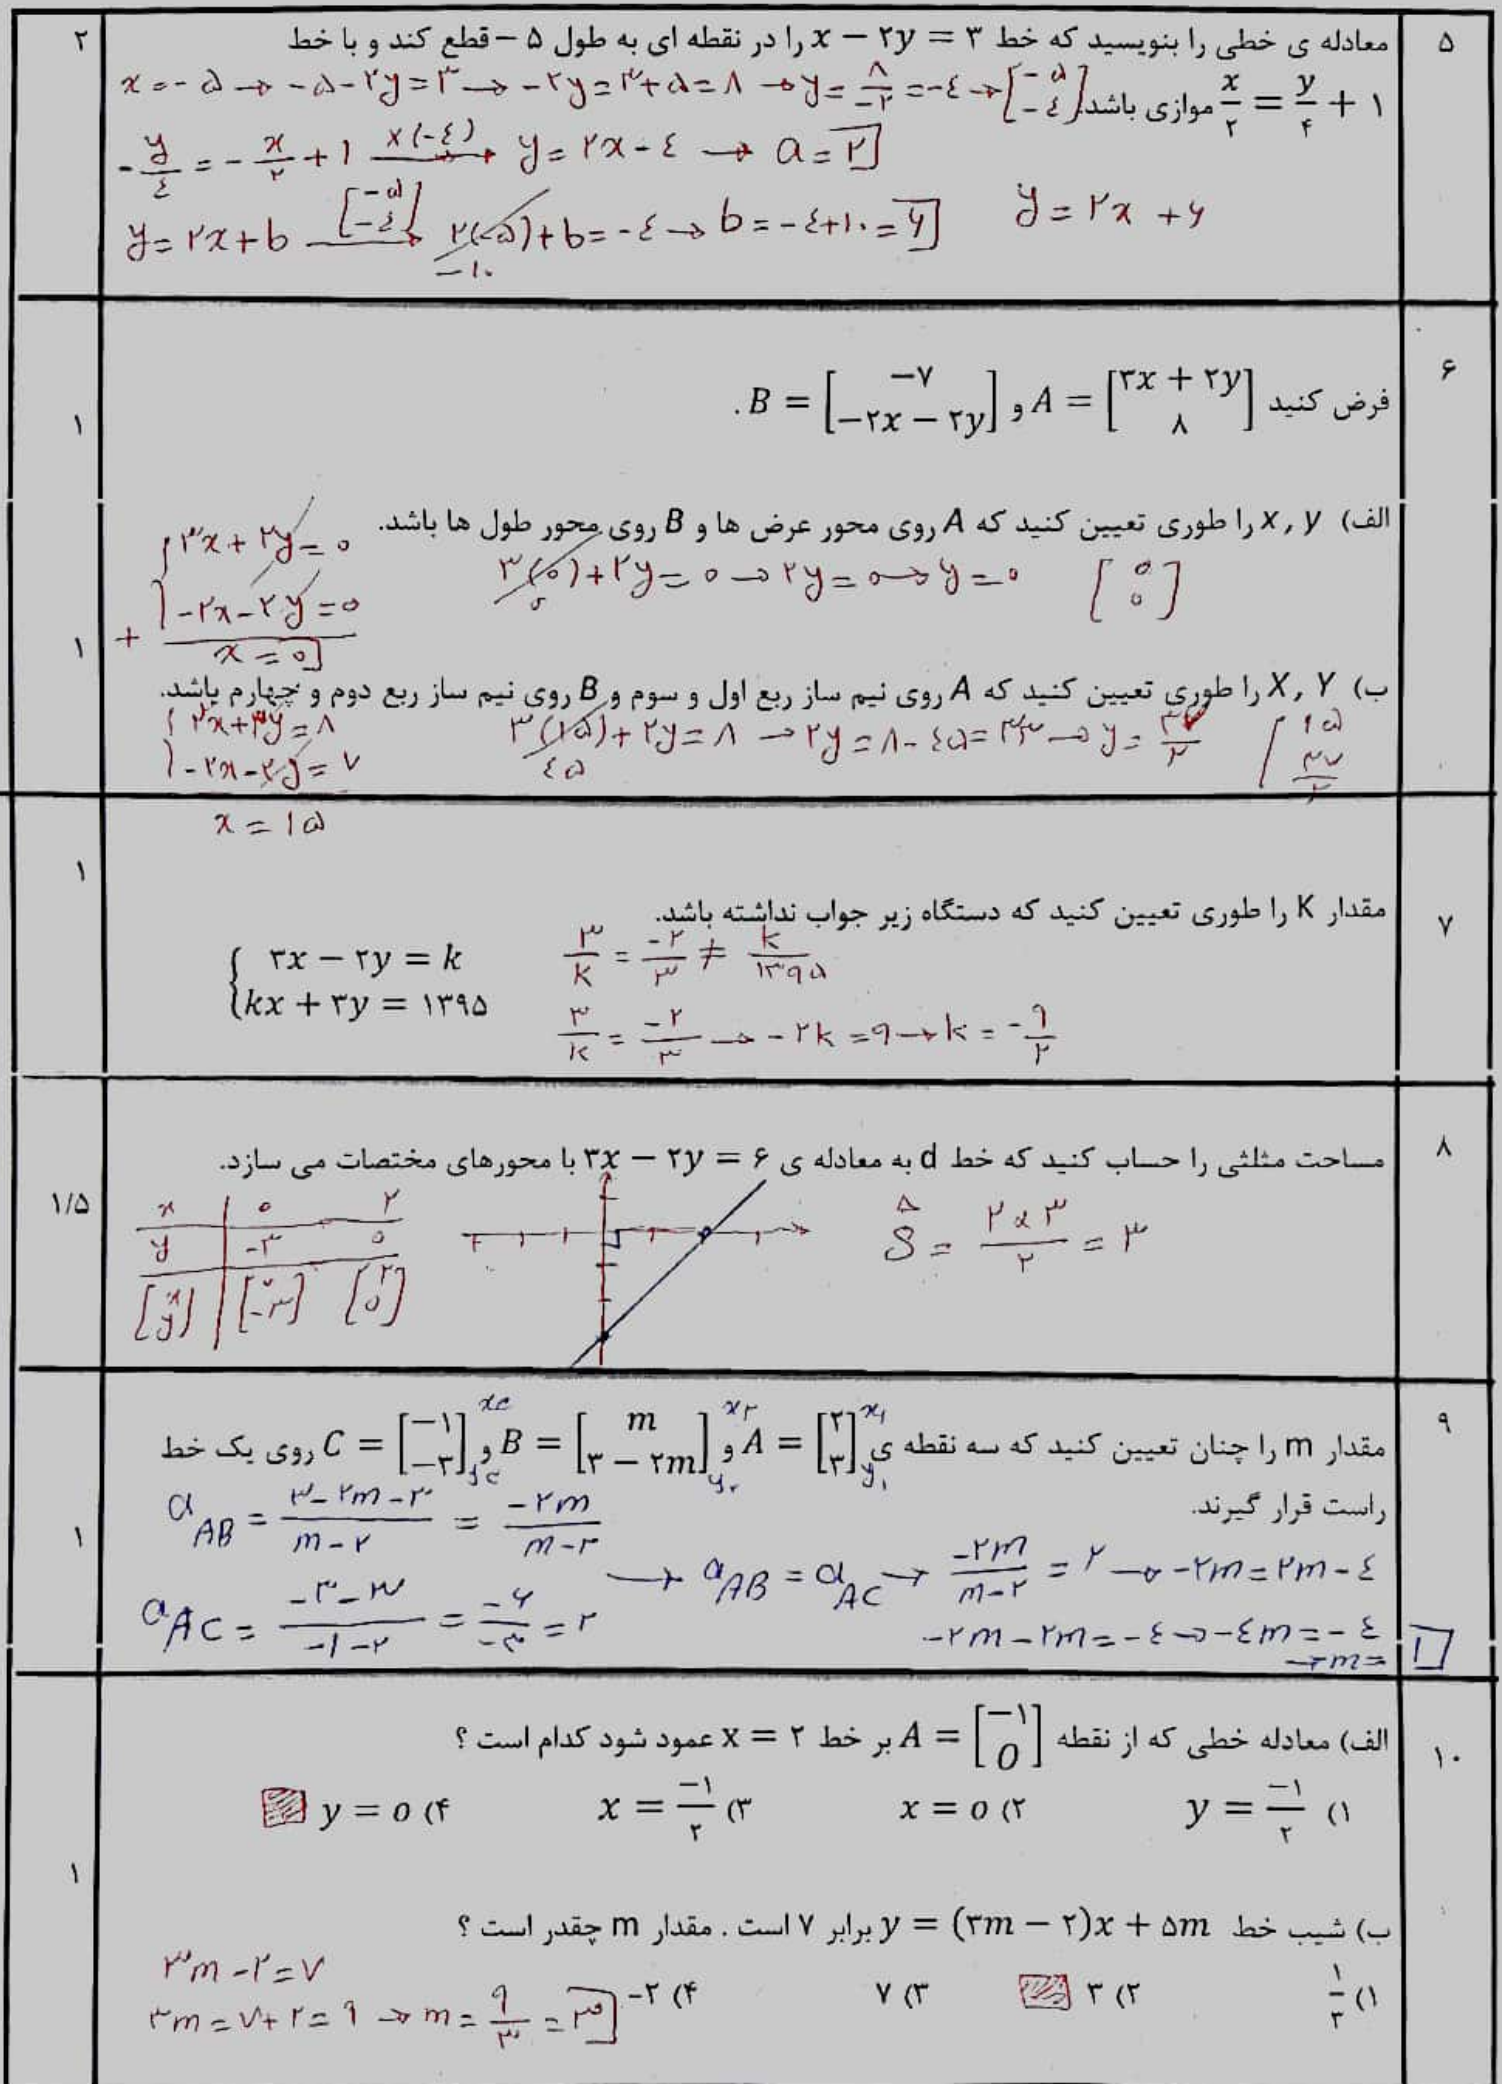 ۵
معادله ی خطی را بنویسید که خط x − ۲y = ۳ را در نقطه ای به طول ۵ − قطع کند و با خط
۲
x = -۵ → -۵-۲y = ۳ → -۲y = ۳+۵ = ۸ → y = ۸/-۲ = -٤ → [-۵ -٤]
x/۲ = y/۴ + ۱ موازی باشد.
-y/٤ = -x/۲ + ۱ ×(-٤) → y = ۲x - ٤ → a = ۲
y = ۲x + b [-۵ -٤] → ۲(-۵) + b = -٤ → b = -٤+۱۰ = ۶
-۱۰
y = ۲x + ۶
۶
فرض کنید A = [۳x + ۲y ۸] و B = [−۷ −۲x − ۲y] .
۱
الف) x , y را طوری تعیین کنید که A روی محور عرض ها و B روی محور طول ها باشد.
{ ۳x + ۲y = ۰
-۲x - ۲y = ۰
+
x = ۰
۳(۰) + ۲y = ۰ → ۲y = ۰ → y = ۰ [۰ ۰]
۰
۱
ب) X , Y را طوری تعیین کنید که A روی نیم ساز ربع اول و سوم و B روی نیم ساز ربع دوم و چهارم باشد.
{ ۳x + ۲y = ۸
-۲x - ۲y = ۷
x = ۱۵
۳(۱۵) + ۲y = ۸ → ۲y = ۸ - ٤۵ = ۳۷ → y = ۳۷/۲ [۱۵ ۳۷/۲
٤۵
۱
۷
مقدار K را طوری تعیین کنید که دستگاه زیر جواب نداشته باشد.
{ ۳x − ۲y = k
kx + ۳y = ۱۳۹۵
۳/k = -۲/۳ ≠ k/۱۳۹۵
۳/k = -۲/۳ → -۲k = ۹ → k = -۹/۲
۸
مساحت مثلثی را حساب کنید که خط d به معادله ی ۳x − ۲y = ۶ با محورهای مختصات می سازد.
۱/۵
x ۰ ۲
y -۳ ۰
[x y] [۰ -۳] [۲ ۰]
S = ۲×۳/۲ = ۳
۹
مقدار m را چنان تعیین کنید که سه نقطه ی A = [۲ ۳] و B = [m ۳ − ۲m] و C = [−۱ −۳] روی یک خط
راست قرار گیرند.
x۱ y۱ x۲ y۲ xc yc
a AB = ۳-۲m-۳/m-۲ = -۲m/m-۲
۱
a AC = -۳-۳/-۱-۲ = -۶/-۳ = ۲
→ a AB = a AC → -۲m/m-۲ = ۲ → -۲m = ۲m - ٤
-۲m - ۲m = -٤ → -٤m = -٤
→ m = ۱
۱۰
الف) معادله خطی که از نقطه A = [−۱ 0] بر خط x = ۲ عمود شود کدام است ؟
۱) y = −۱/۲ ۲) x = 0 ۳) x = −۱/۲ ۴) y = 0
۱
ب) شیب خط y = (۳m − ۲)x + ۵m برابر ۷ است . مقدار m چقدر است ؟
۳m - ۲ = ۷
۱) ۱/۳ ۲) ۳ ۳) ۷ ۴) −۲
۳m = ۷+۲ = ۹ → m = ۹/۳ = ۳